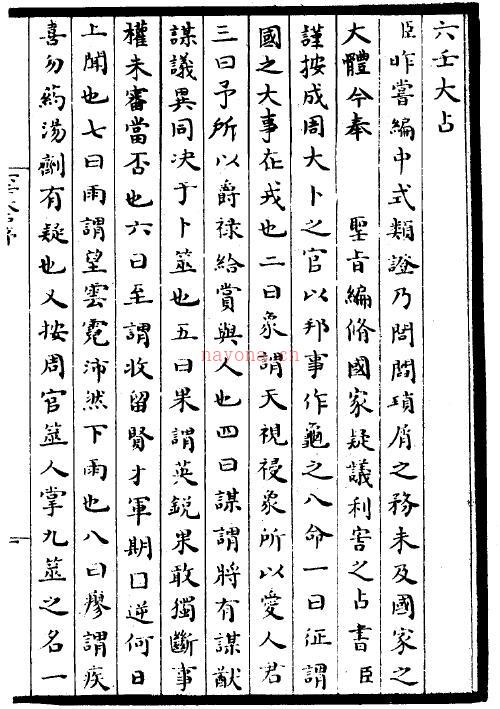 六壬大占
臣昨嘗編中式類證乃閭閻瑣屑之務未及國家之
大體今奉 聖旨編脩國家疑議利害之占書臣
謹按成周大卜之官以邦事作龜之八命一曰征謂
國之大事在戎也二曰象謂天視祲象所以愛人君
三曰予所以爵祿給賞與人也四曰謀謂將有謀猷
謀議異同決于卜筮也五曰果謂英銳果敢獨斷事
權未審當否也六曰至謂收留賢才軍期口逆何日
上聞也七曰雨謂望雲霓沛然下雨也八曰瘳謂疾
喜勿葯湯劑有疑也又按周官筮人掌九筮之名一
nayona.cn